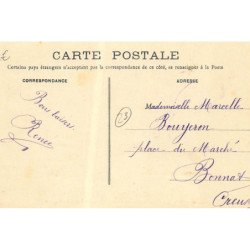 CARTE POSTALE
Certains pays étrangers n'acceptant pas la correspondance de ce côté, se renseigner à la Poste
CORRESPONDANCE
ADRESSE
Bons baisers
Renée
Mademoiselle Marcelle
Bouyeron
place du Marché
Bonnat
Creuse